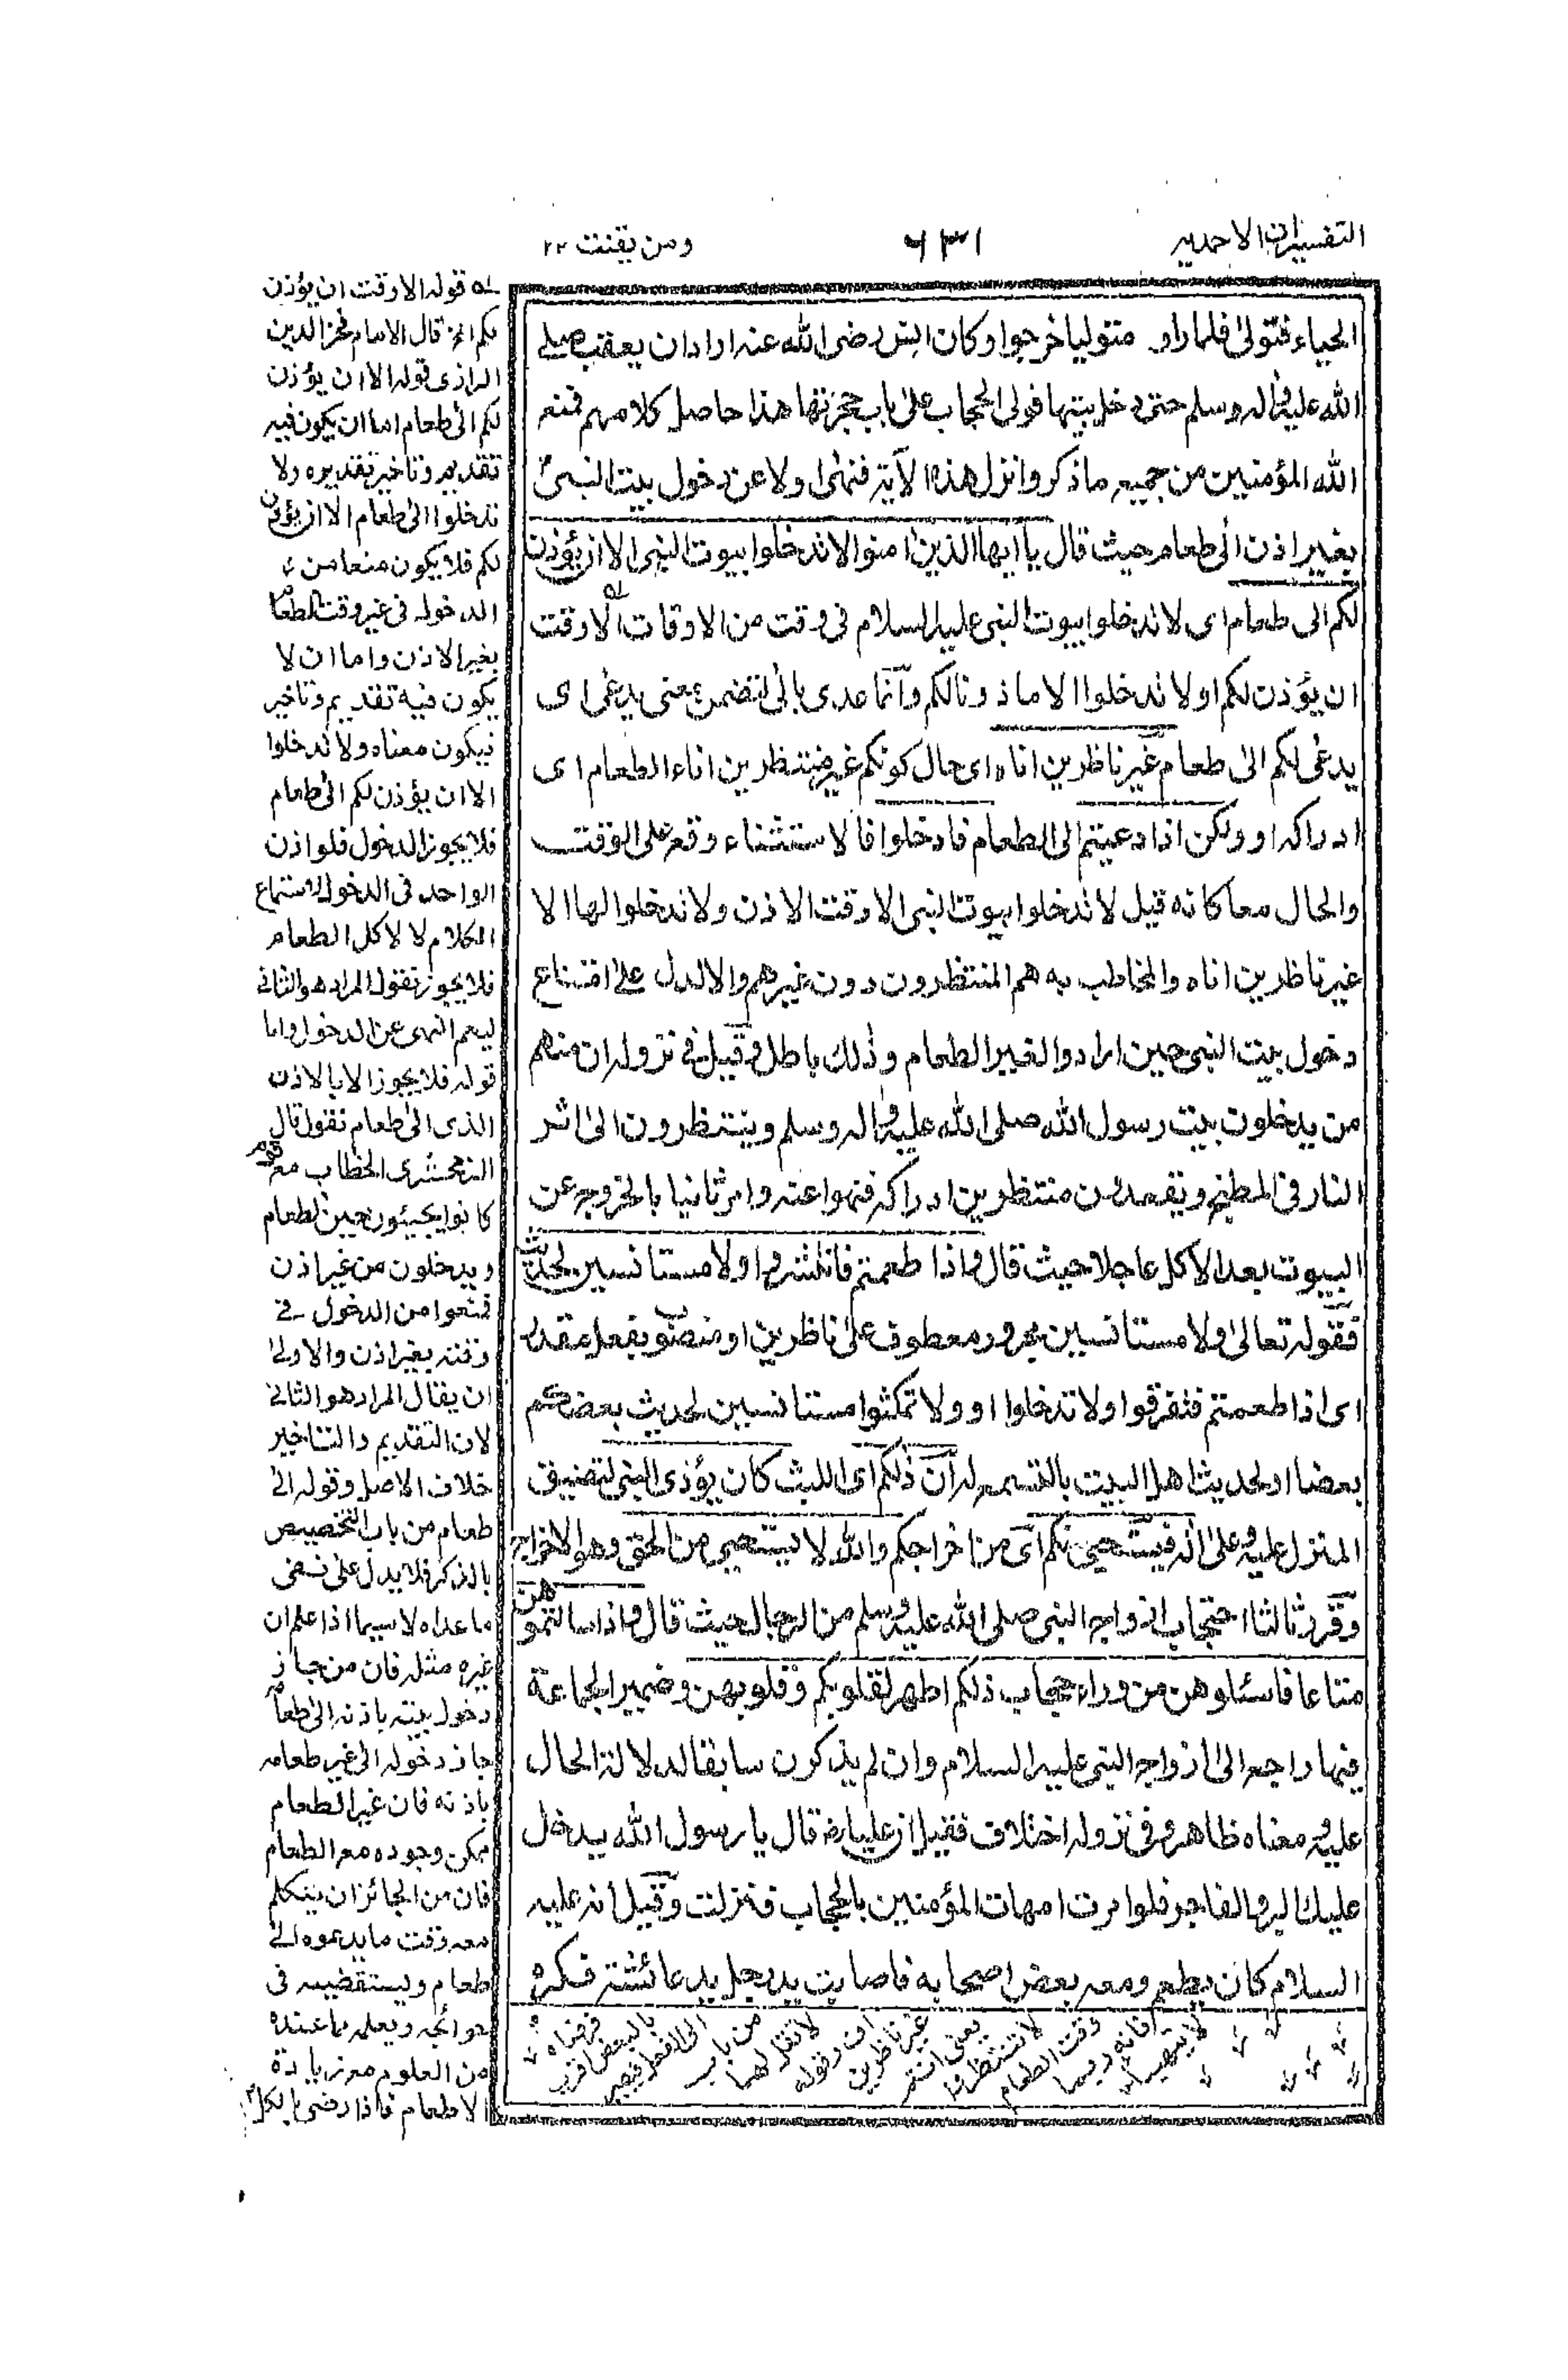 التفسيرات الاحمدية
٦٣١
ومن يقنت ٢٢
الحياء فتولى فلما راوه متوليا خرجوا وكان انس رضى الله عنه اراد ان يعقب صلى
الله عليه واله وسلم حتى دخل بيتها فولى الحجاب على باب حجرتها هذا حاصل كلامهم فمنع
الله المؤمنين من جميع ما ذكر وانزل هذه الآية فنهى اولا عن دخول بيت النبى
بغير اذن الى طعام حيث قال يا ايها الذين امنوا لا تدخلوا بيوت النبى الا ان يؤذن
لكم الى طعام اى لا تدخلوا بيوت النبى عليه السلام فى وقت من الاوقات الا وقت
ان يؤذن لكم او لا تدخلوا الا ماذونا لكم وانما عدى بالى لتضمن معنى يدعى اى
يدعى لكم الى طعام غير ناظرين اناه اى حال كونكم غير منتظرين اناء الطعام اى
ادراكه او ولكن اذا دعيتم الى الطعام فادخلوا فالاستثناء وقع على الوقت
والحال معا كانه قيل لا تدخلوا بيوت النبى الا وقت الاذن ولا تدخلوا لها الا
غير ناظرين اناه والمخاطب به هم المنتظرون دون غيرهم والا لدل على امتناع
دخول بيت النبى حين ارادوا لغير الطعام وذلك باطل وقيل فى نزوله ان منهم
من يدخلون بيت رسول الله صلى الله عليه واله وسلم وينتظرون الى اثر
النار فى المطبخ ويقعدون منتظرين ادراكه فنهوا عنه وامر ثانيا بالخروج عن
البيوت بعد الاكل عاجلا حيث قال واذا طعمتم فانتشروا ولا مستانسين لحديث
فقوله تعالى ولا مستانسين مجرور معطوف على ناظرين او منصوب بفعل مقدر
اى اذا طعمتم فتفرقوا ولا تدخلوا او ولا تمكثوا مستانسين لحديث بعضكم
بعضا او لحديث اهل البيت بالتسمع له ان ذلكم اى اللبث كان يؤذى النبى لتضييق
المنزل عليه وعلى اله فيستحيى منكم اى من اخراجكم والله لا يستحيى من الحق وهو الاخراج
وقرر ثالثا احتجاب ازواج النبى صلى الله عليه وسلم من الرجال حيث قال واذا سالتموهن
متاعا فاسئلوهن من وراء حجاب ذلكم اطهر لقلوبكم وقلوبهن وضمير الجماعة
فيها راجع الى ازواج النبى عليه السلام وان لم يذكرن سابقا لدلالة الحال
عليه ومعناه ظاهر وفى نزوله اختلاف فقيل ان عليا رض قال يا رسول الله يدخل
عليك البر والفاجر فلو امرت امهات المؤمنين بالحجاب فنزلت وقيل انه عليه
السلام كان يطعم ومعه بعض اصحابه فاصابت يد رجل يد عائشة فكره
له قوله الا وقت ان يؤذن
لكم الخ قال الامام فخر الدين
الرازى قوله الا ان يؤذن
لكم الى طعام اما ان يكون فيه
تقديم وتاخير تقديره ولا
تدخلوا الى طعام الا ان يؤذن
لكم فلا يكون منعا من
الدخول فى غير وقت الطعام
بغير الاذن واما ان لا
يكون فيه تقديم وتاخير
فيكون معناه ولا تدخلوا
الا ان يؤذن لكم الى طعام
فلا يجوز الدخول فلو اذن
الواحد فى الدخول لاستماع
الكلام لا لاكل الطعام
فلا يجوز نقول المراد هو الثانى
ليعم النهى عن الدخول واما
قوله فلا يجوز الا بالاذن
الذى الى طعام نقول قال
الزمخشرى الخطاب مع قوم
كانوا يجيئون حين الطعام
ويدخلون من غير اذن
فمنعوا من الدخول فى
وقته بغير اذن والاولى
ان يقال المراد هو الثانى
لان التقديم والتاخير
خلاف الاصل وقوله الى
طعام من باب التخصيص
بالذكر فلا يدل على نفى
ما عداه لا سيما اذا علم ان
غيره مثله فان من جاز
دخول بيته باذنه الى طعام
جاز دخوله الى غير طعامه
باذنه فان غير الطعام
ممكن وجوده مع الطعام
فان من الجائز ان يتكلم
معه وقت ما يدعوه الى
طعام ويستقضيه فى
حوائجه ويعلمه مما عنده
من العلوم مع زيادة
الاطعام فاذا رضى بالكل
فرضاه
بالبعض اقرب
الى الفعل فيصير
من باب
لا تقل لهما
اف وقوله
غير ناظرين
يعنى انتم
لا تنتظروا
وقت الطعام
فانه ربما
لا يتهيأ